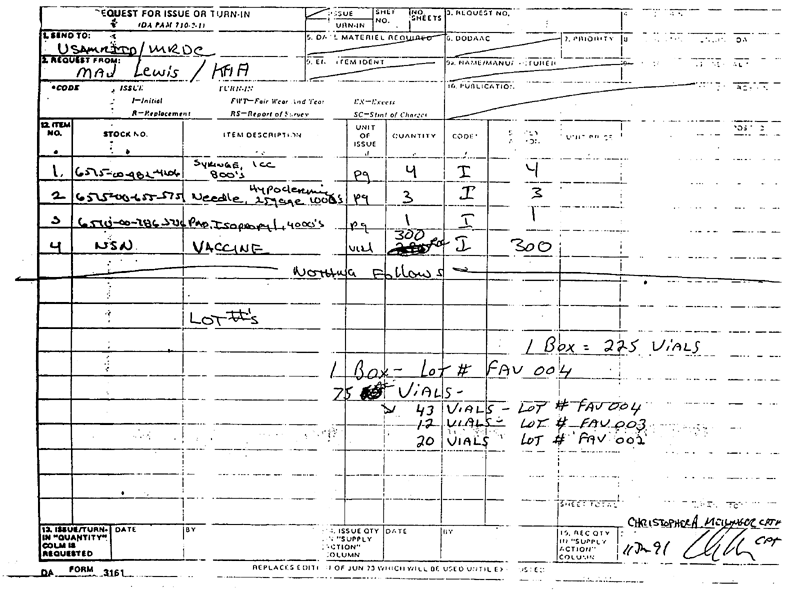 REQUEST FOR ISSUE OR TURN-IN
(DA PAM 710-2-1)
ISSUE
TURN-IN
SHEET NO.
NO. SHEETS
3. REQUEST NO.
1. SEND TO:
USAMRIID/MRDC
5. DATE MATERIEL REQUIRED
6. DODAAC
7. PRIORITY
2. REQUEST FROM:
MAJ Lewis / KHA
9. END ITEM IDENT
9a. NAME/MANUFACTURER
*CODE
ISSUE
TURN-IN
10. PUBLICATION
I—Initial
FWT—Fair Wear And Tear
EX—Excess
R—Replacement
RS—Report of Survey
SC—Stmt of Charges
12. ITEM NO.
STOCK NO.
ITEM DESCRIPTION
UNIT OF ISSUE
QUANTITY
CODE*
UNIT PRICE
1. SYRINGE, 1CC 800's pg 4 I 4
2 Needle, Hypodermic 25gage 1000's pg 3 I 3
3 PAD, Isopropyl, 4000's pg 1 I 1
4 NSN VACCINE vial 300 I 300
NOTHING Follows
LOT #'s
1 Box = 225 VIALS
1 Box - LOT # FAV 004
75 VIALS -
43 VIALS - LOT # FAV 004
12 VIALS - LOT # FAV 003
20 VIALS LOT # FAV 002
SHEET TOTAL
13. ISSUE/TURN-IN "QUANTITY" COLM IS REQUESTED
DATE
BY
ISSUE QTY IN "SUPPLY ACTION" COLUMN
DATE
BY
15. REC QTY IN "SUPPLY ACTION" COLUMN
CHRISTOPHER A.
11 Jan 91
CPT
DA FORM 3161
REPLACES EDITION OF JUN 73 WHICH WILL BE USED UNTIL